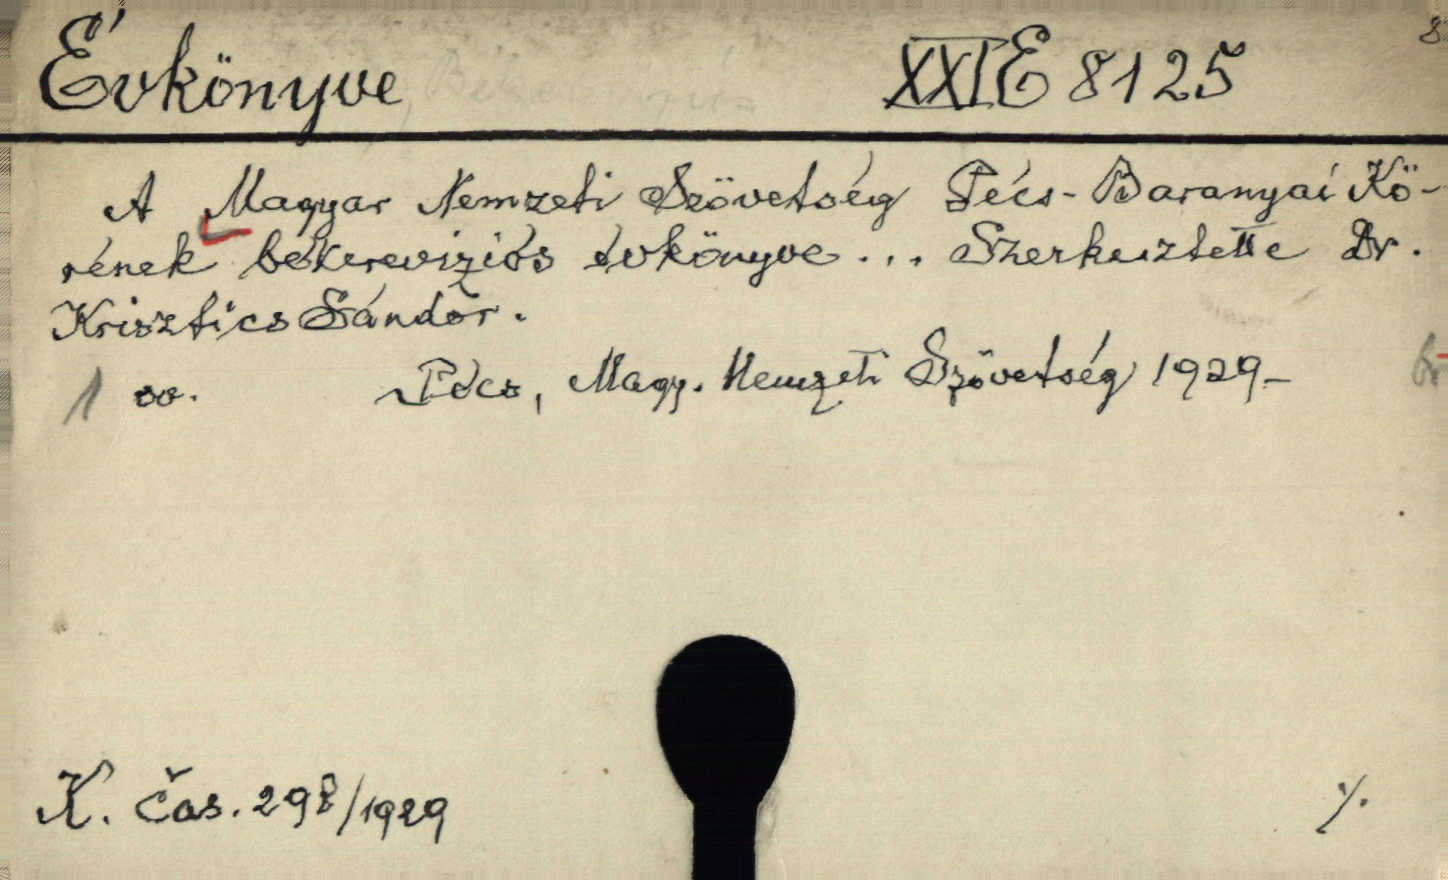 Évkönyve XXI E 8125
A Magyar Nemzeti Szövetség Pécs-Baranyai Kö-
rének békerevíziós évkönyve... Szerkesztette Dr.
Krisztics Sándor.
1 sv. Pécs, Magy. Nemzeti Szövetség 1929-
K. čas. 298/1929 ./.